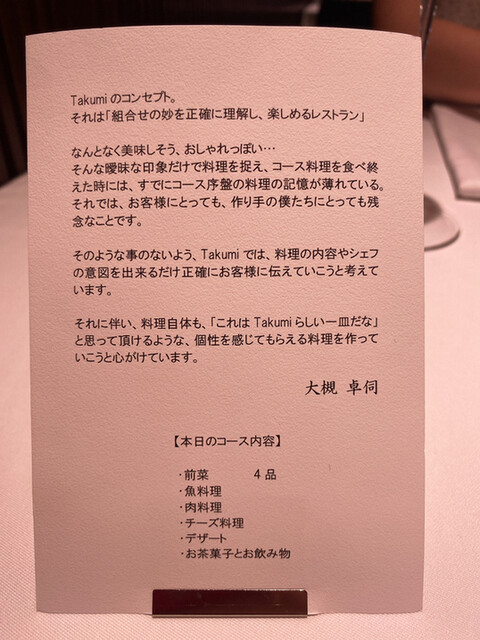 Takumiのコンセプト。
それは「組合せの妙を正確に理解し、楽しめるレストラン」
なんとなく美味しそう、おしゃれっぽい…
そんな曖昧な印象だけで料理を捉え、コース料理を食べ終
えた時には、すでにコース序盤の料理の記憶が薄れている。
それでは、お客様にとっても、作り手の僕たちにとっても残
念なことです。
そのような事のないよう、Takumiでは、料理の内容やシェフ
の意図を出来るだけ正確にお客様に伝えていこうと考えて
います。
それに伴い、料理自体も、「これは Takumiらしい一皿だな」
と思って頂けるような、個性を感じてもらえる料理を作って
いこうと心がけています。
大槻 卓伺
【本日のコース内容】
・前菜 4品
・魚料理
・肉料理
・チーズ料理
・デザート
・お茶菓子とお飲み物